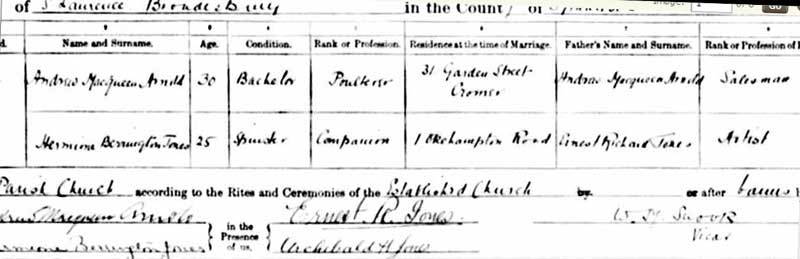 of St Laurence Brondesbury in the County of
Name and Surname. Age. Condition. Rank or Profession. Residence at the time of Marriage. Father's Name and Surname. Rank or Profession of
Andrew Macqueen Arnold 30 Bachelor Poulterer 31 Garden Street Andrew Macqueen Arnold Salesman
Cromer
Hermione Berrington Jones 25 Spinster Companion 1 Okehampton Road Ernest Richard Jones Artist
Parish Church according to the Rites and Ceremonies of the Established Church by or after banns
drew Macqueen Arnold in the Ernest R. Jones
Presence W. H. Snook
ermione Berrington Jones of us, Archibald H Jones Vicar